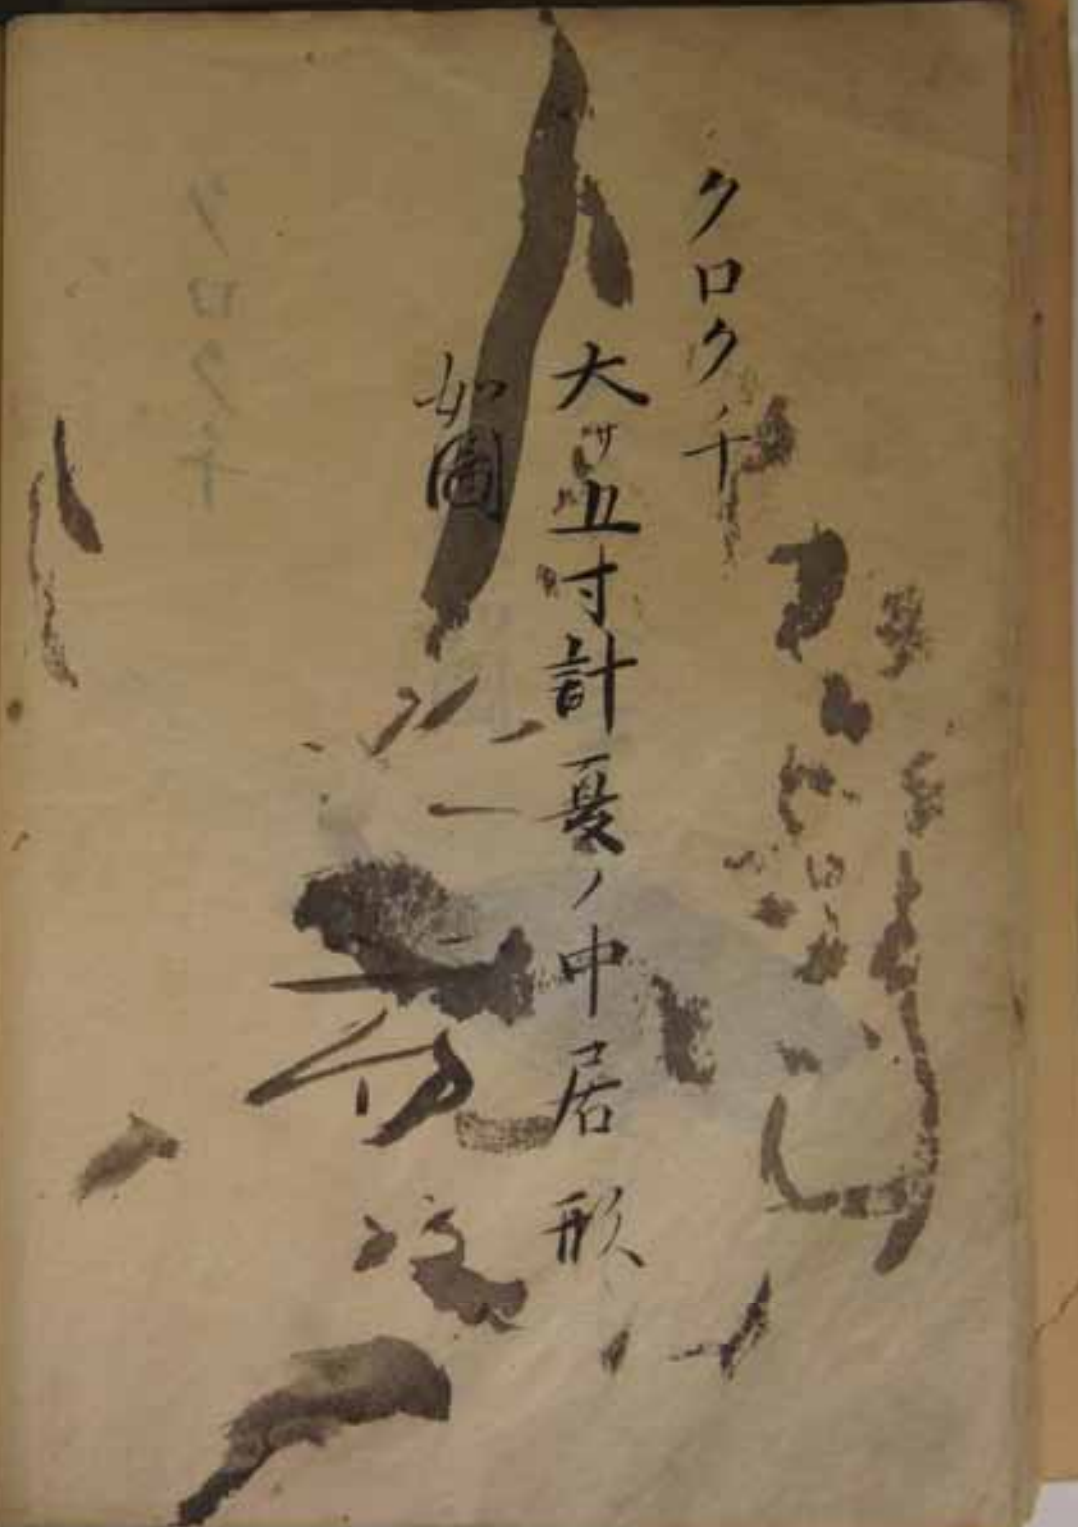 クロクチ
大サ五寸計夏ノ中居形
如圖